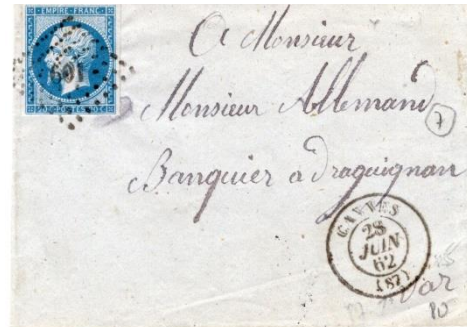 EMPIRE FRANC
20 C POSTES 20 C
A Monsieur
Monsieur Allemand
7
Banquier a Draguignan
CANNES
28
JUIN
62
(87)
Var